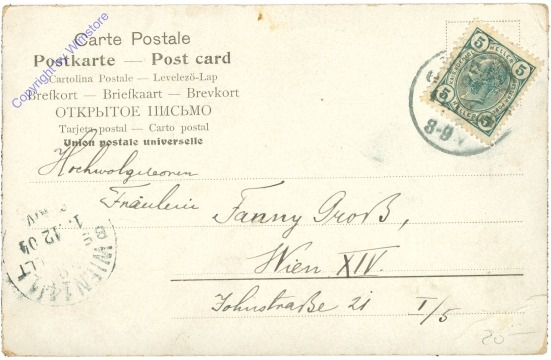 Carte Postale
Postkarte — Post card
Cartolina Postale — Levelező-Lap
Brefkort — Briefkaart — Brevkort
ОТКРЫТОЕ ПИСЬМО
Tarjeta postal — Carto postal
Union postale universelle
Copyright by Wimstore
5 HELLER 5
8-9
Hochwolgeboren
Fräulein Fanny Groß,
Wien XIV.
Johnstraße 21 I/5
WIEN
1. 12 04
20-